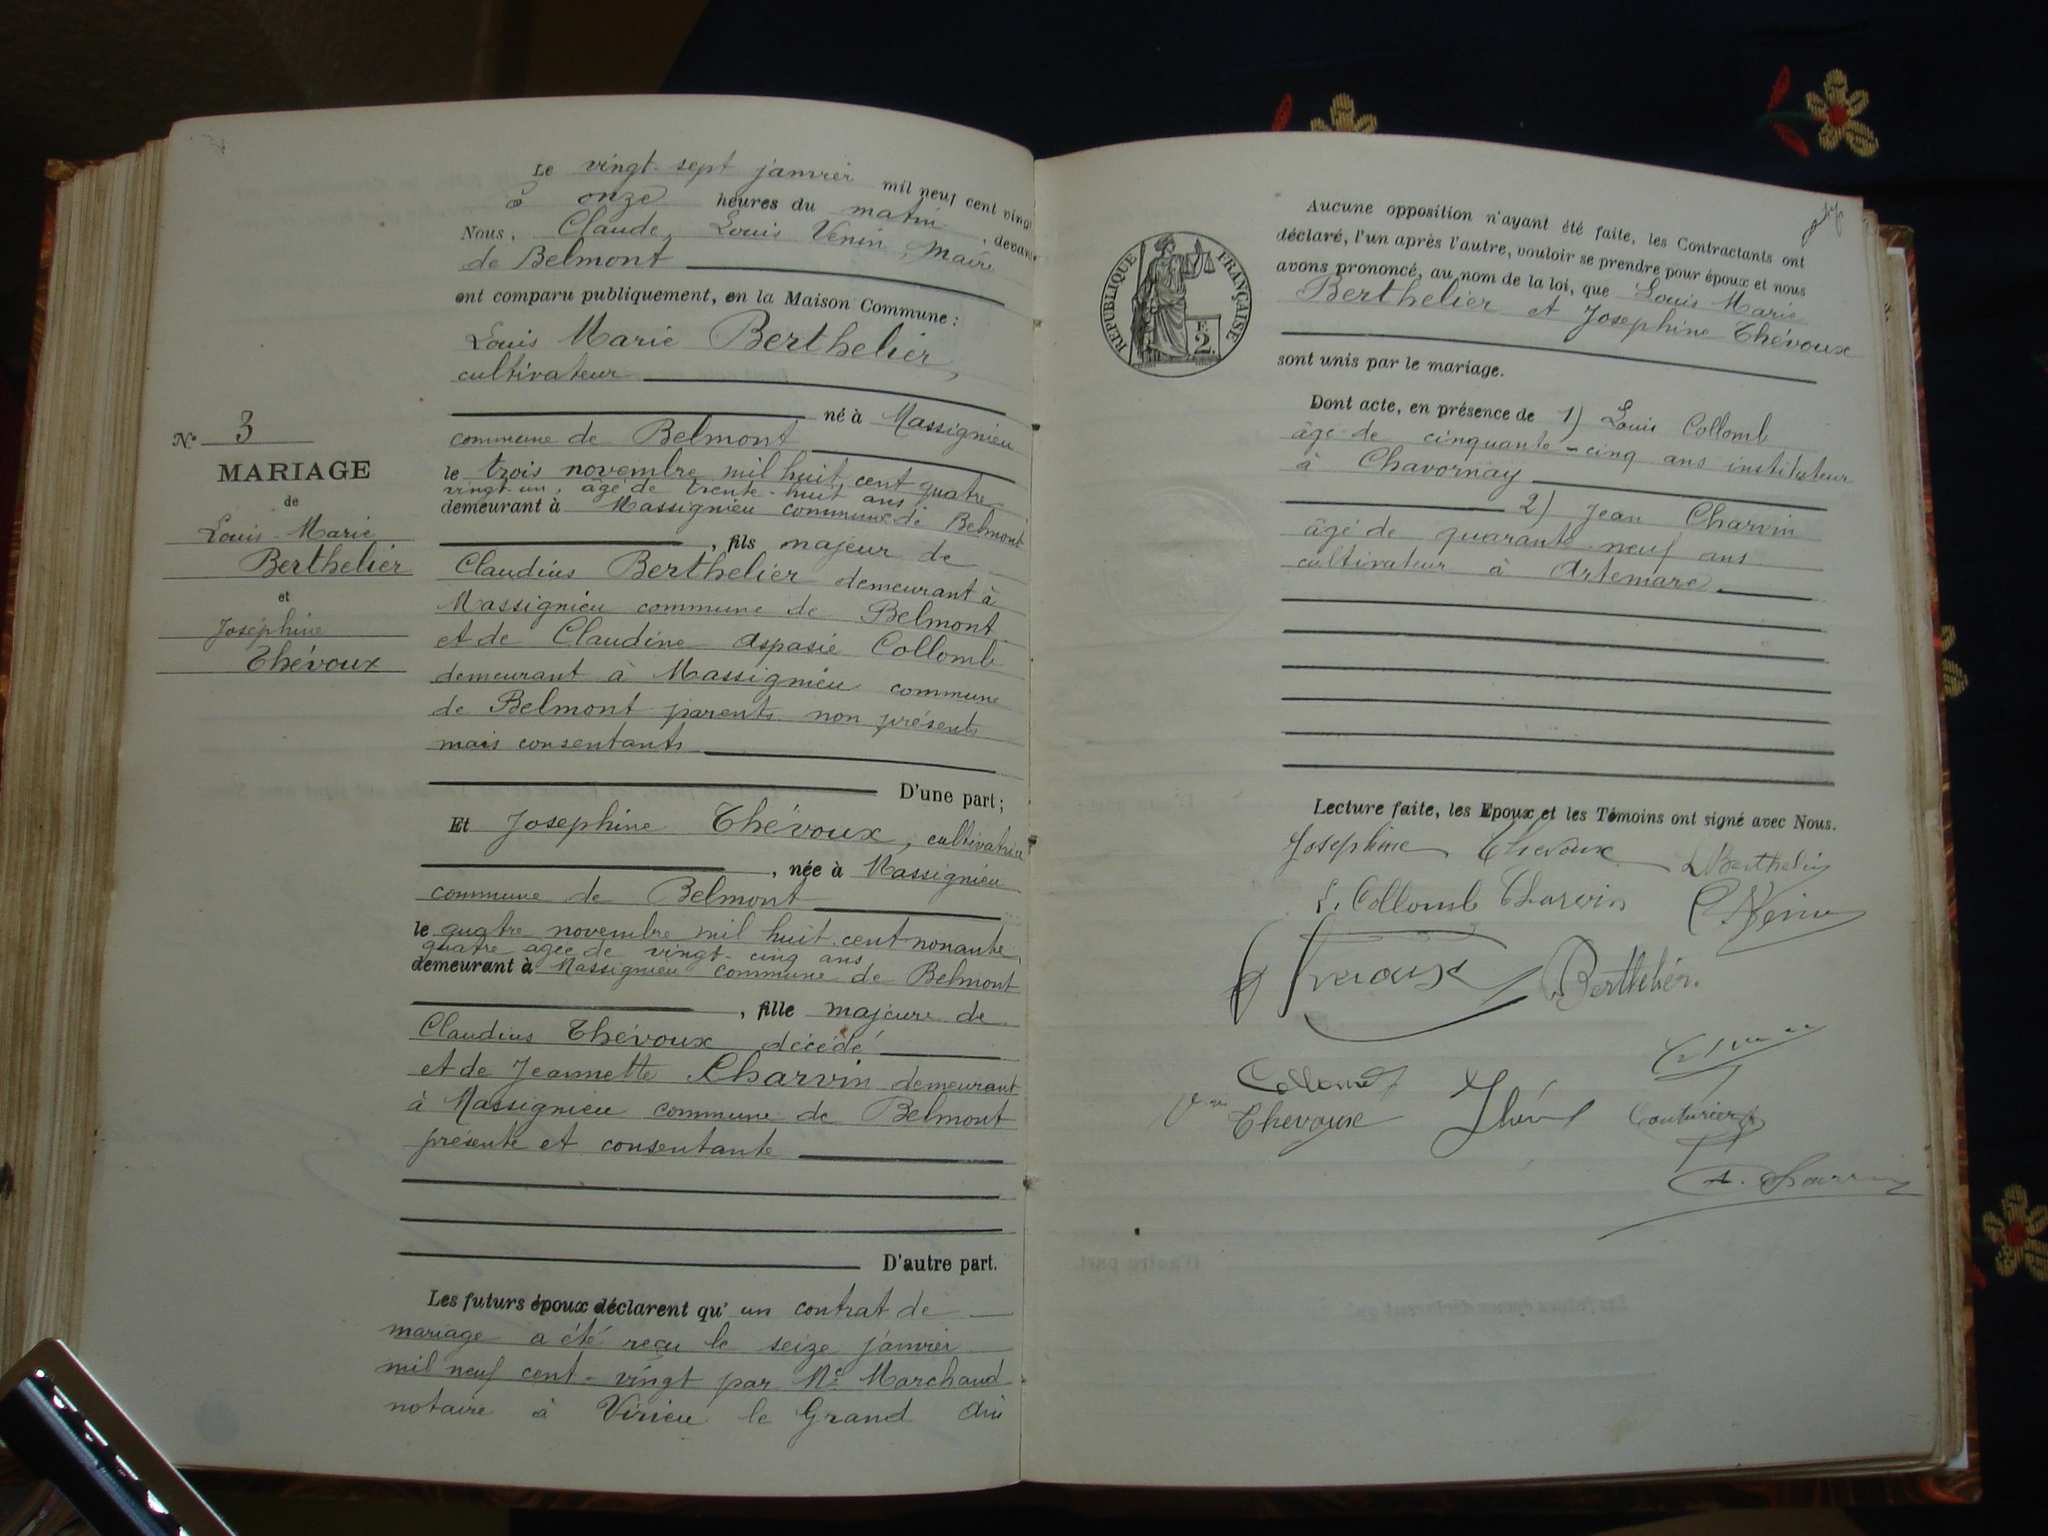 Le vingt-sept janvier mil neuf cent vingt
à onze heures du matin, devant
Nous, Claude, Louis Venin, Maire
de Belmont
ont comparu publiquement, en la Maison Commune :
Louis Marie Berthelier,
cultivateur
né à Massignieu
commune de Belmont
le trois novembre mil huit cent quatre
vingt-un, âgé de trente-huit ans
demeurant à Massignieu commune de Belmont
, fils majeur de
Claudius Berthelier demeurant à
Massignieu commune de Belmont
et de Claudine Aspasie Collomb
demeurant à Massignieu commune
de Belmont parents non présents
mais consentants
D'une part ;
Et Josephine Thévoux, cultivatrice
, née à Massignieu
commune de Belmont
le quatre novembre mil huit cent nonante
quatre agée de vingt-cinq ans
demeurant à Massignieu commune de Belmont
, fille majeure de
Claudius Thévoux décédé
et de Jeannette Charvin demeurant
à Massignieu commune de Belmont
présente et consentante
D'autre part.
Les futurs époux déclarent qu' un contrat de
mariage a été reçu le seize janvier
mil neuf cent-vingt par Me Marchand
notaire à Virieu le Grand Ain
N° 3
MARIAGE
de
Louis-Marie
Berthelier
et
Joséphine
Thévoux
RÉPUBLIQUE FRANÇAISE
F.
2.
Aucune opposition n'ayant été faite, les Contractants ont
déclaré, l'un après l'autre, vouloir se prendre pour époux et nous
avons prononcé, au nom de la loi, que Louis Marie
Berthelier et Josephine Thévoux
sont unis par le mariage.
Dont acte, en présence de 1) Louis Collomb
âgé de cinquante-cinq ans instituteur
à Chavornay
2) Jean Charvin
âgé de quarante-neuf ans
cultivateur à Artemare.
Lecture faite, les Epoux et les Témoins ont signé avec Nous.
Josephine Thevoux L Berthelier
L. Collomb Charvin C Venin
Thevoux Berthelier
Collomb
Thevoux Couturier
A. Charvin